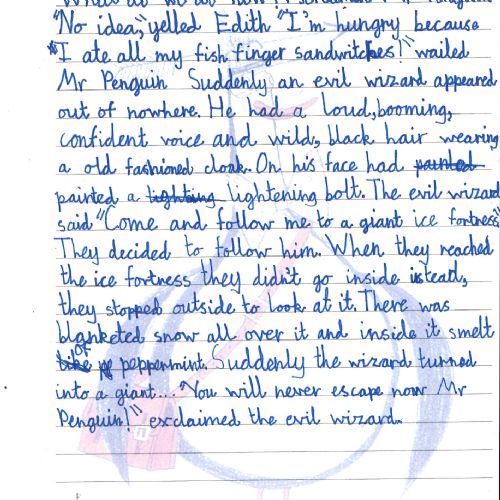 "No idea," yelled Edith "I'm hungry because
"I ate all my fish finger sandwitches!" wailed
Mr Penguin Suddenly an evil wizard appeared
out of nowhere. He had a loud, booming,
confident voice and wild, black hair wearing
a old fashioned cloak. On his face had painted
painted a lighting lightening bolt. The evil wizard
said "Come and follow me to a giant ice fortress"
They decided to follow him. When they reached
the ice fortress they didn't go inside istead,
they stopped outside to look at it. There was
blanketed snow all over it and inside it smelt
like of peppermint. Suddenly the wizard turned
into a giant... "You will never escape now Mr
Penguin!" exclaimed the evil wizard.